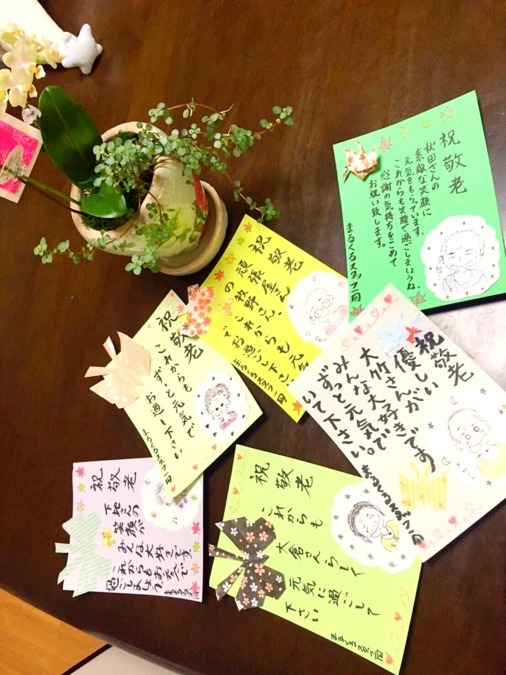 祝敬老
秋田さんの
素敵な笑顔に
元気をもらっています。
これからも笑顔で過ごしましょうね。
感謝の気持ちをこめて
お祝い致します。
まるくるスタッフ一同
祝敬老
頑張屋さん
の牧野さん。
これからも元気
でお過し下さい
祝敬老
優しい
大竹さんが
みんな大好きです
ずっと元気で。
いて下さい。
祝敬老
これからも
ずっと元気で
お過し下さい
まるくるスタッフ一同
祝敬老
下地さんの
笑顔が
みんな大好きです。
これからもお元気で
過ごしましょう。
祝敬老
これからも
大倉さんらしく
元気に過ごして
下さい
まるくるスタッフ一同